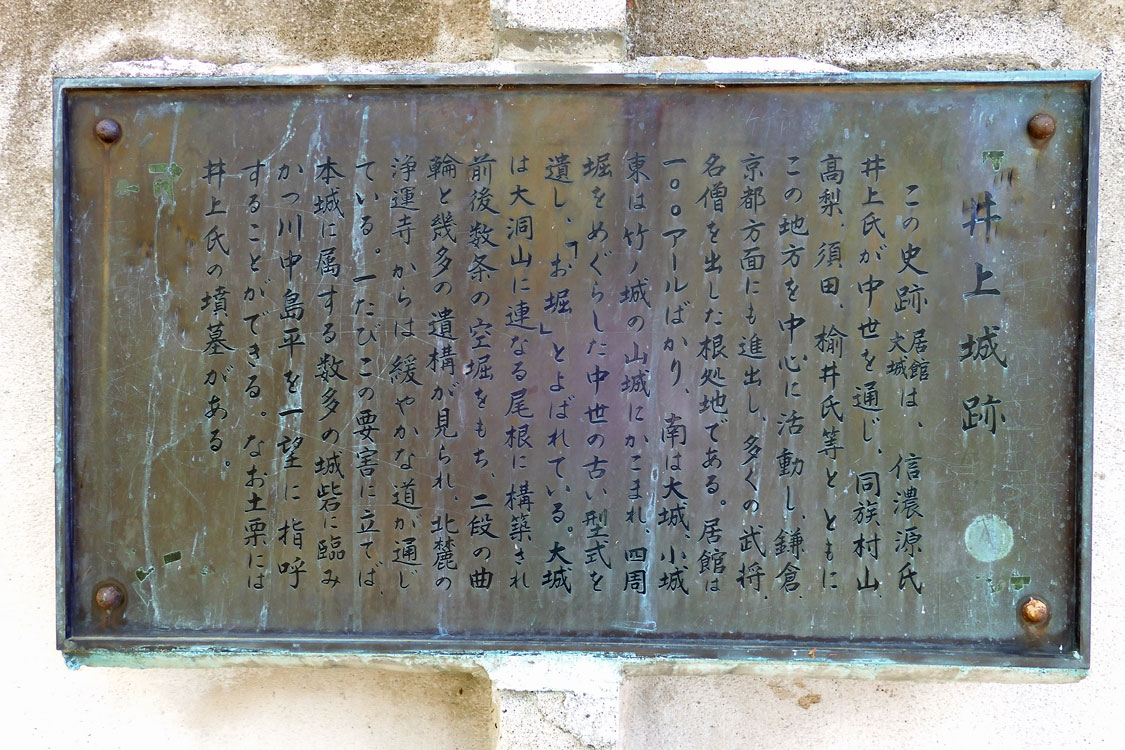 井上城跡
この史跡居館大城は、信濃源氏
井上氏が中世を通じ、同族村山
高梨、須田、楡井氏等とともに
この地方を中心に活動し、鎌倉、
京都方面にも進出し、多くの武将、
名僧を出した根処地である。居館は
一〇〇アールばかり、南は大城、小城
東は竹ノ城の山城にかこまれ、四周
堀をめぐらした中世の古い型式を
遺し、「お堀」とよばれている。大城
は大洞山に連なる尾根に構築され
前後数条の空堀をもち、二段の曲
輪と幾多の遺構が見られ、北麓の
浄運寺からは緩やかな道が通じ
ている。一たびこの要害に立てば、
本城に属する数多の城砦に臨み
かつ川中島平を一望に指呼
することができる。なお土栗には
井上氏の墳墓がある。